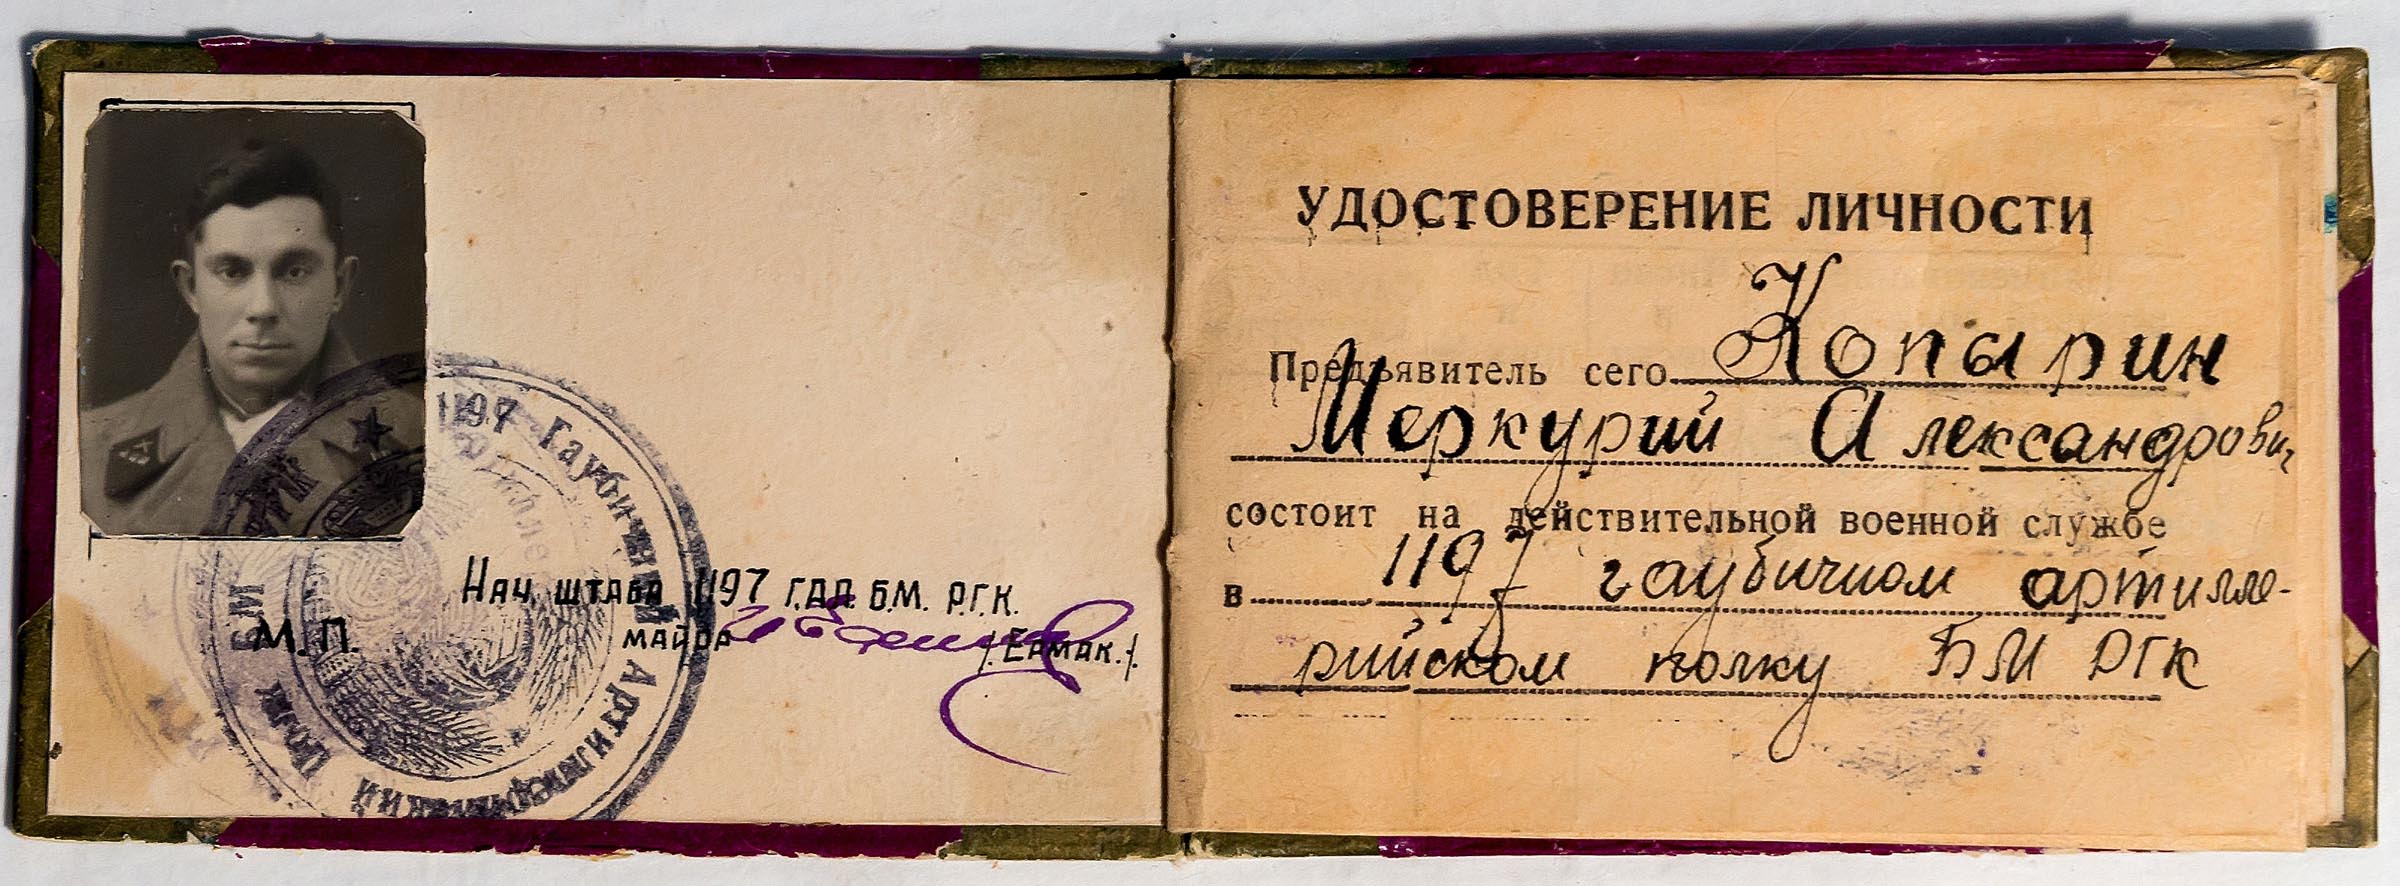 1197 Гаубичный Артиллерийский Полк БМ
Нач. штаба 1197 Г.А.П. Б.М. Р.Г.К.
М. П.
майор
/.Ермак./.
УДОСТОВЕРЕНИЕ ЛИЧНОСТИ
Предъявитель сего Копырин
Меркурий Александрович
состоит на действительной военной службе
в 1197 гаубичном артилле-
рийском полку БМ РГК